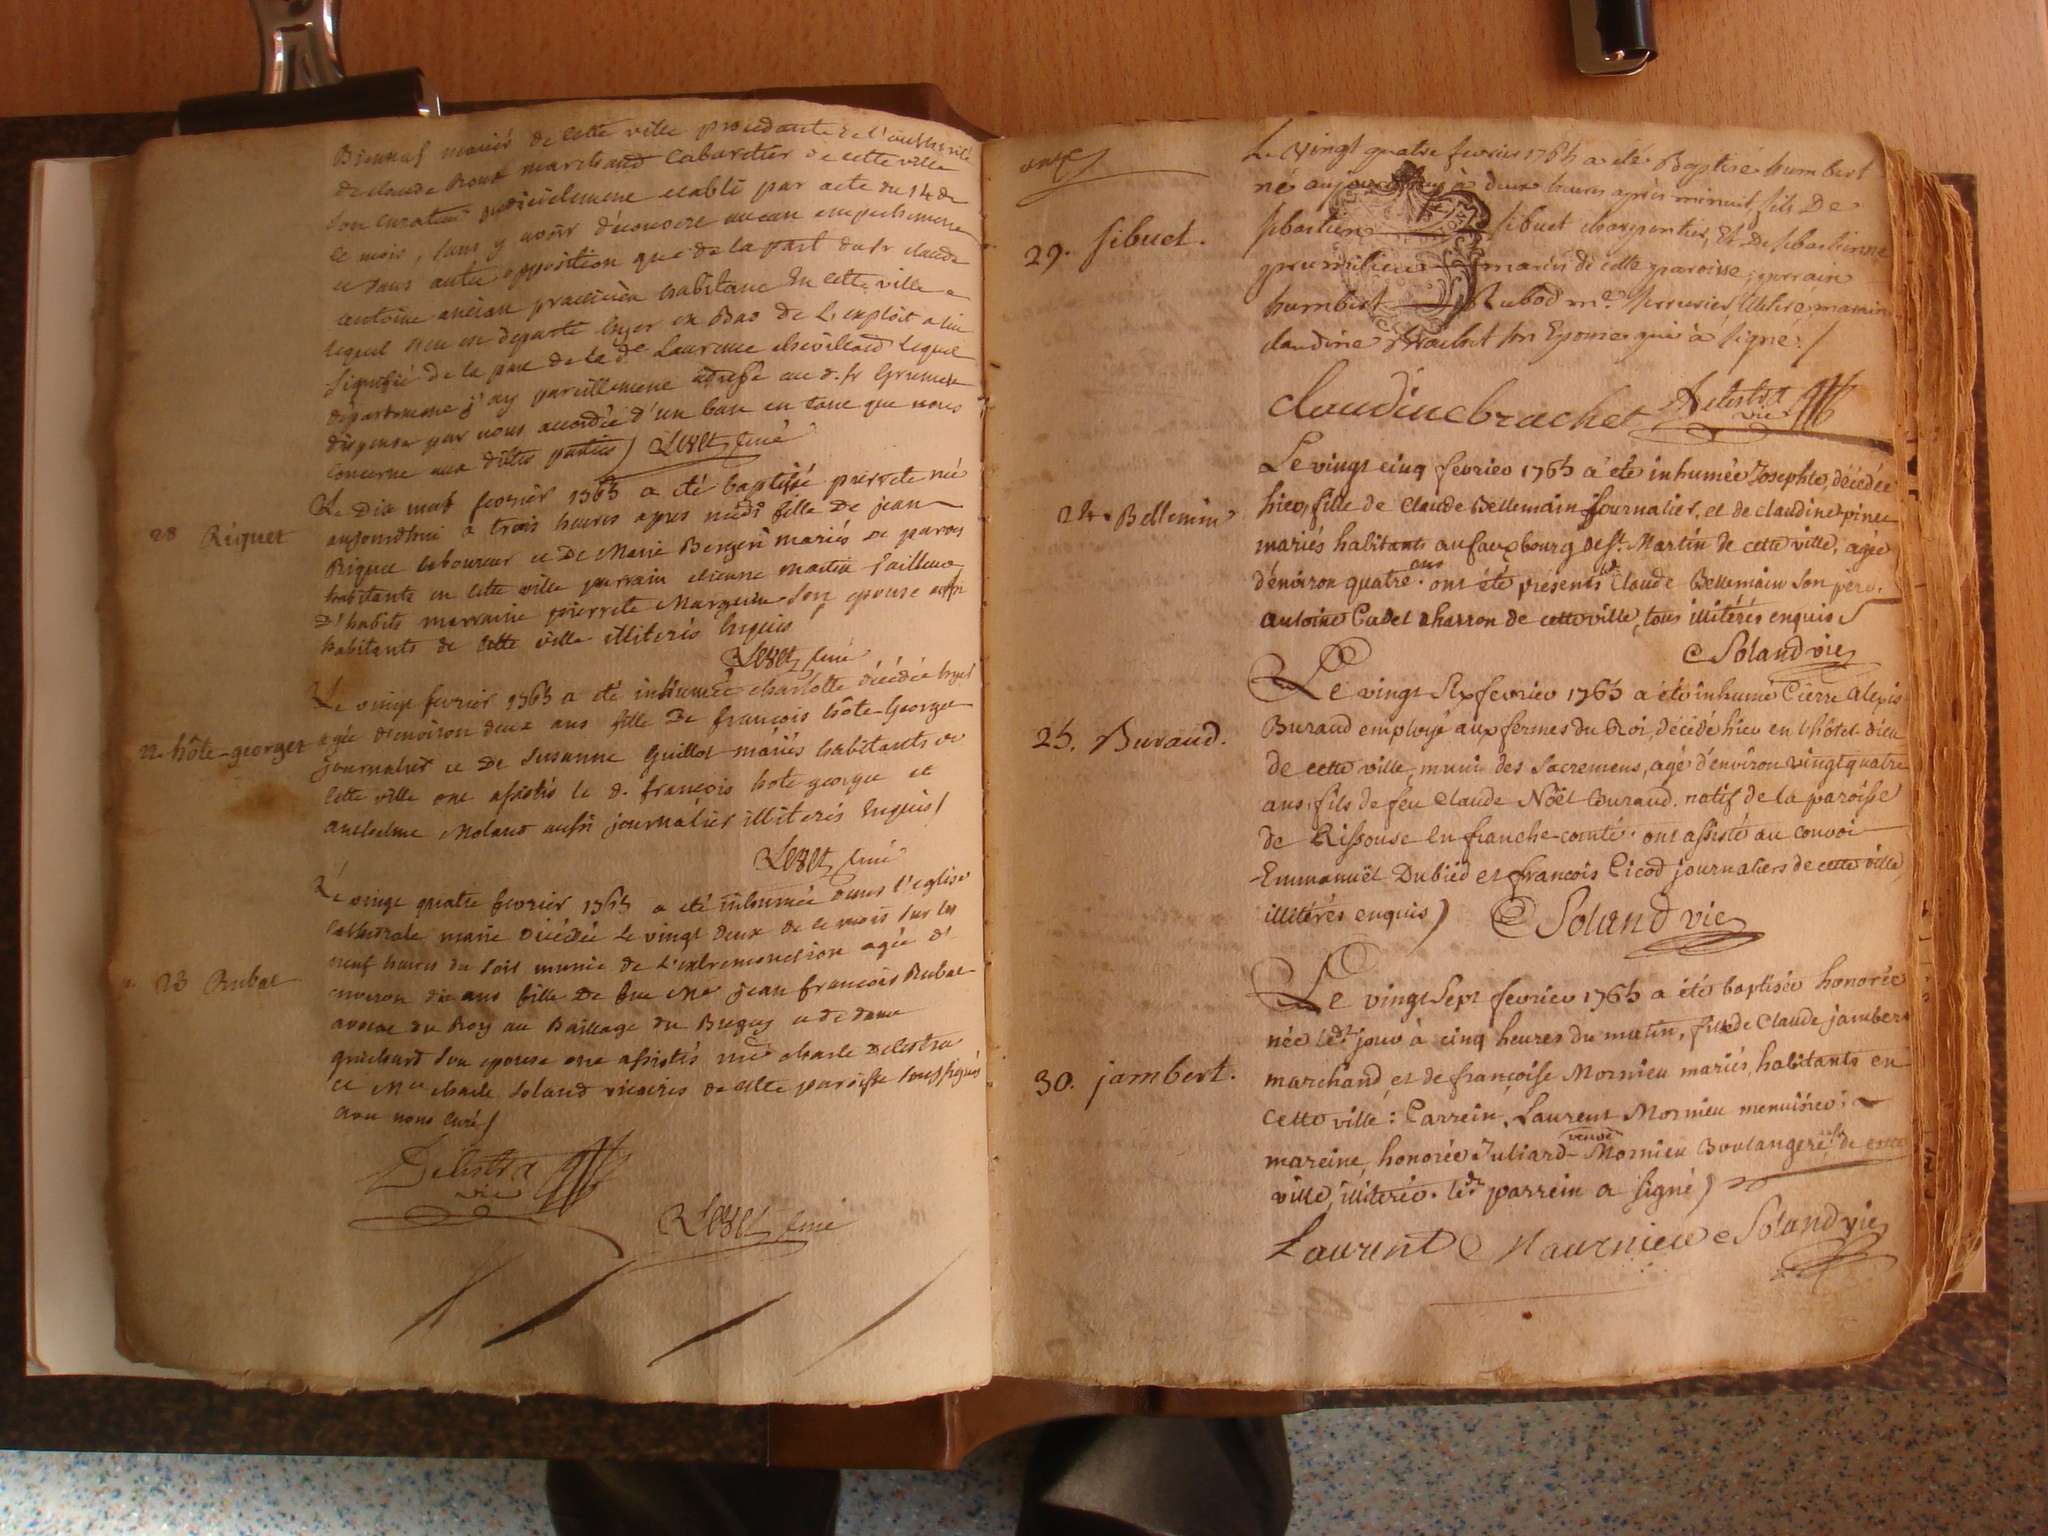 mariés de cette ville procedante de l'authorité
de claude Roux marchand Cabaretier de cette ville
son curateur etabli par acte du 14 de
ce mois, sans y avoir découvert aucun empechement
et sans autre opposition que de la part du sr claude
antoine ancian praticien habitant en cette ville
lequel s'en est departi hyer en Bas de L'exploit a lui
signifié de la part de la de Laurence chevillard lequel
departement j'ay pareillement
dispense par nous accordée d'un ban en tant que nous
concerne aux dittes parties) curé
28 Riquet
Le Dix neuf fevrier 1765 a été baptisée pierrete née
aujourdhui a trois heures apres midi fille De jean
Riquet laboureur et De Marie Berger mariés de paroy
habitants en cette ville parrain etienne martin Tailleur
D'habits marraine pierrete Marguin son epouse
habitants de cette ville illiterés Enquis
curé
22. hôte-georges
Le vingt fevrier 1765 a été inhumée charlotte décédée hyer
agée d'environ deux ans fille De françois hôte-George
journalier et De Susanne Guillot mariés habitants de
cette ville ont assistés le d. françois hote george et
anthelme Moland aussi journalier illiterés Enquis/
curé
23 Rubat
Le vingt quatre fevrier 1765 a été inhumée dans l'eglise
cathedrale marie décédée Le vingt deux de ce mois sur les
neuf heures du soir munie de L'extremonction agée d'
environ dix ans fille De feu Me jean françois Rubat
avocat du Roy au Bailliage du Bugey et de dame
guichard son epouse ont assistés Mre charle Delestra
et Mre charle Soland vicaires de cette paroisse soussignés
avec nous Curé/
Delestra
vic
curé
onze
29. sibuet.
Le Vingt quatre fevrier 1765 a été Baptisé humbert
né aujourdhuy à deux heures après minuit, fils De
sebastien sibuet charpentier, Et De sebastienne
grumillieu mariés de cette paroisse; parrain
humbert Rubod me Serrurier, marrine
claudine Brachet son Epouse qui à signé./
claudine brachet Delestra
vic
24. Bellemin
Le vingt cinq fevrier 1765 a été inhumée Josephte, décédée
hier, fille de Claude Bellemain journalier, et de claudine pinet
mariés habitants au fauxbourg de st. Martin de cette ville, agée
d'environ quatre ans ont été présents le dt Claude Bellemain son père,
antoine Cadet charron de cette ville, tous illitérés enquis
C Soland vic
25. Buraud.
Le vingt Six fevrier 1765 a été inhumé Pierre Alexis
Buraud employé aux fermes du Roi, décédé hier en l'hôtel-dieu
de cette ville, muni des Sacremens, agé d'environ vingtquatre
ans, fils de feu Claude Noël Buraud. natif de la paroisse
de Rissouse en franche-comté. ont assisté au convoi
Emmanuël Dubied et françois Picod journaliers de cette ville,
illitérés enquis) C Soland vic
30. jambert.
Le vingt Sept fevrier 1765 a été baptisée honorée
née led. jour à cinq heures du matin, fille de Claude jambert
marchand et de françoise Mornieu mariés, habitants en
cette ville: Parrein, Laurent Mornieu menuisier;
mareine, honorée Juliard veuve Mornieu Boulangere, de cette
ville, illiterée. led. parrein a signé)
Laurent Maurnieu C Soland vic